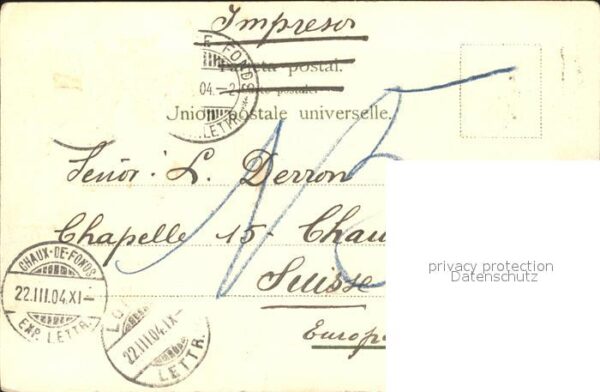 Impresor
Tarjeta postal.
Union postale universelle.
E FONDS
04.-2
LETTR.
Señor L. Derron
Chapelle 15- Chau
Suisse
Europ
CHAUX-DE-FONDS
22.III.04.XI-
EXP. LETTR.
LO
22.III.04.IX-
LETTR.
privacy protection
Datenschutz